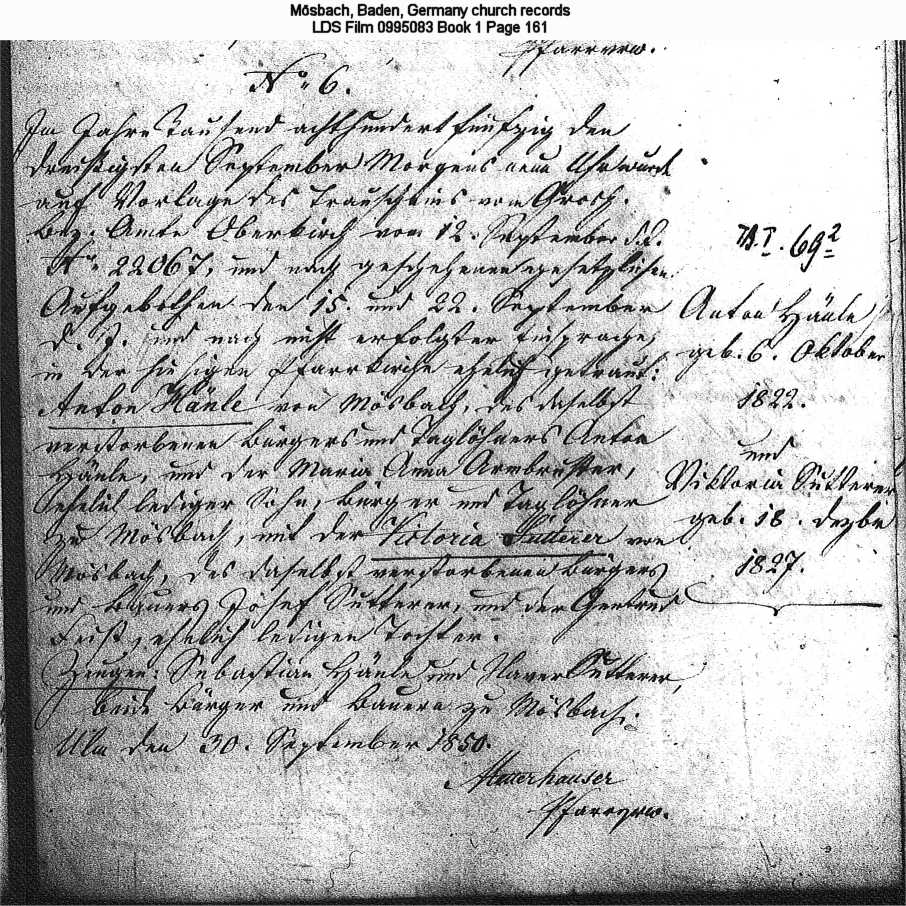 Mösbach, Baden, Germany church records
LDS Film 0995083 Book 1 Page 161
Pfarrverw.
No. 6.
Im Jahre Tausend achthundert fünfzig den
dreißigsten September Morgens neun Uhr wurde
auf Vorlage des Trauscheins vom Grosh.
Bez. Amte Oberkirch vom 12. September d.J.
No. 22067, und nach geschehenen gesetzlichen
Aufgebothen den 15. und 22. September
d. J. und nach nicht erfolgter Einsprache,
in der hiesigen Pfarrkirche ehelich getraut:
Anton Hänle von Mösbach, des daselbst
verstorbenen Bürgers und Taglöhners Anton
Hänle, und der Maria Anna Armbruster,
ehelich lediger Sohn, Bürger und Taglöhner
zu Mösbach, mit der Victoria Sutterer von
Mösbach, des daselbst verstorbenen Bürgers
und Bauers Josef Sutterer, und der Gertrud
ehelich ledigen Tochter.
Zeugen: Sebastian Hänle und Xaver Sutterer,
beide Bürger und Bauern zu Mösbach.
Ulm den 30. September 1850.
Pfarrverw.
69 2
Anton Hänle
geb. 6. Oktober
1822.
und
Viktoria Sutterer
geb. 18. Dezbr
1827.